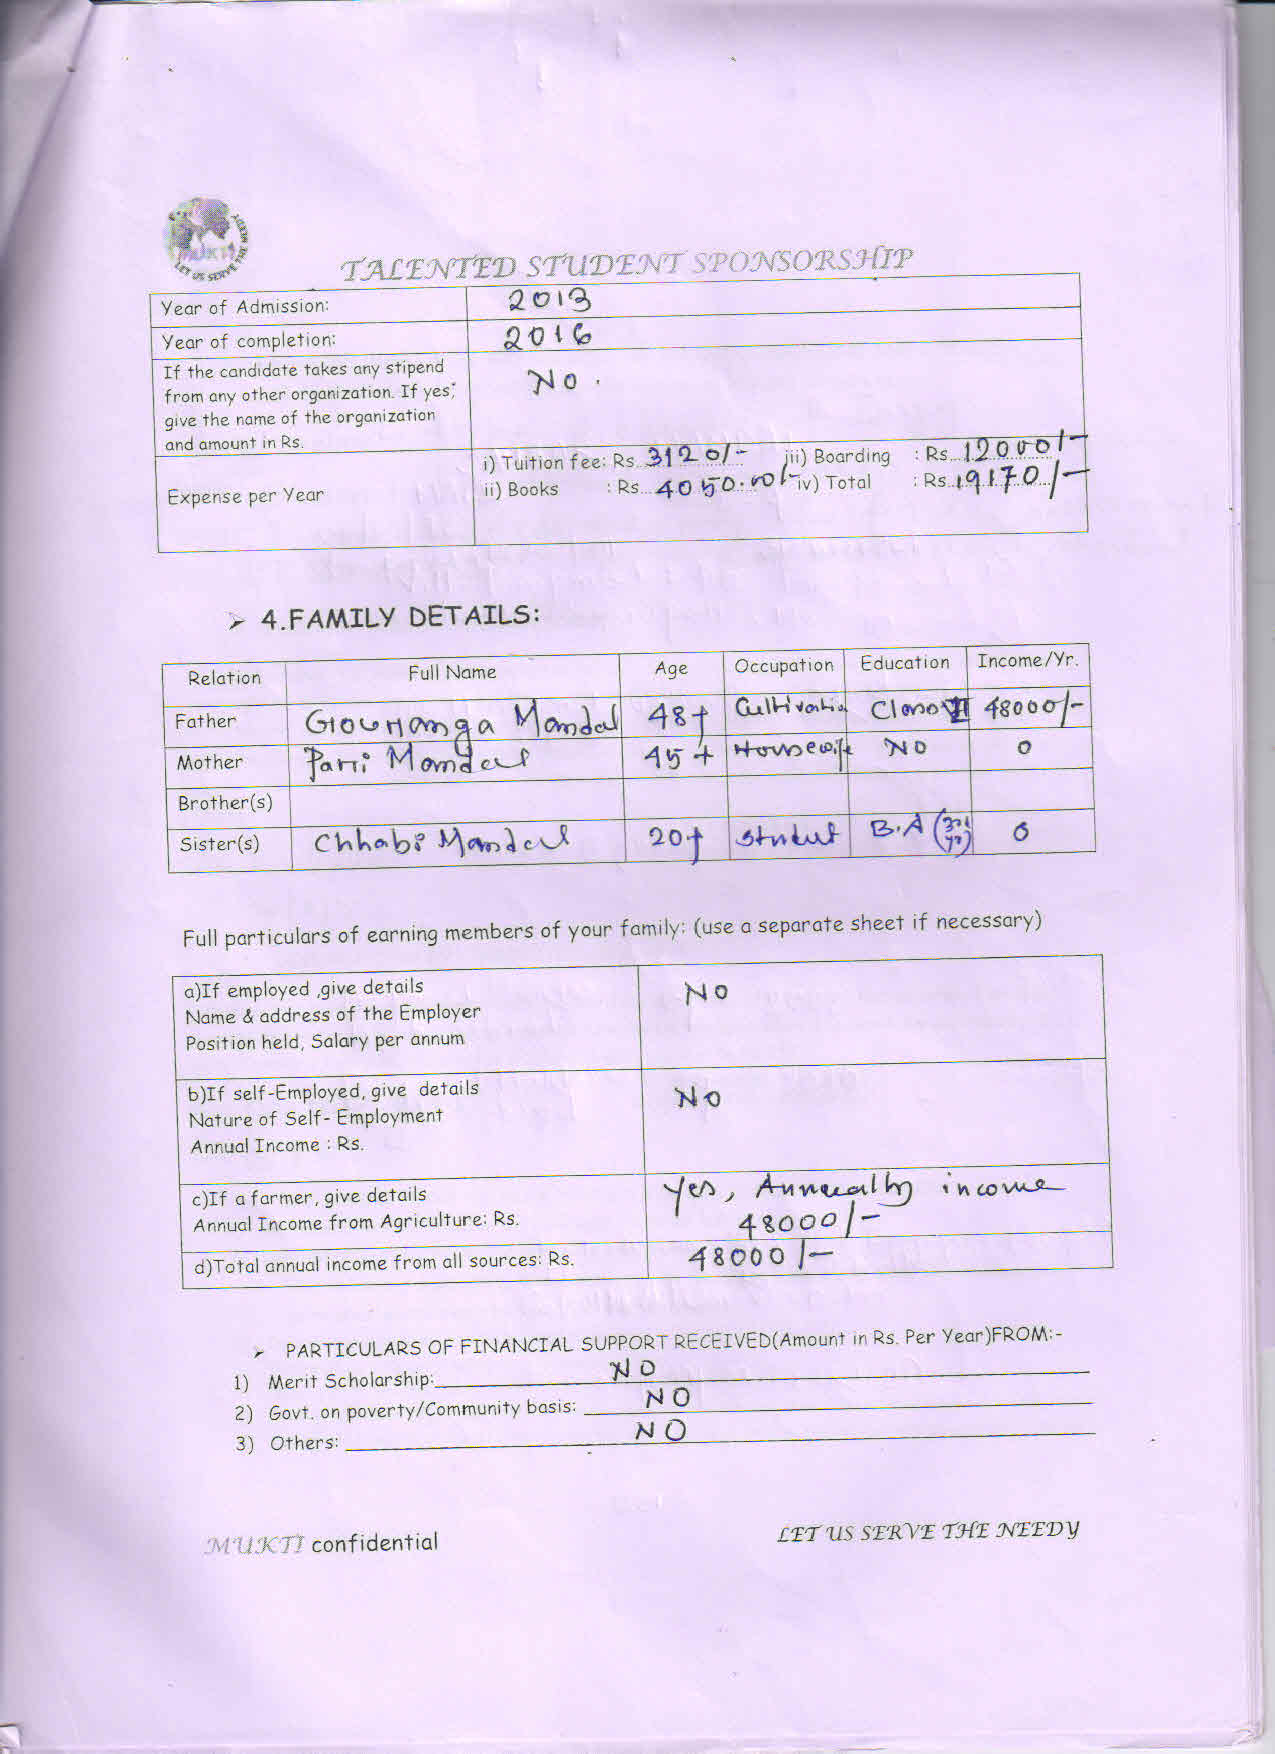 MUKTI
LET US SERVE THE NEEDY
TALENTED STUDENT SPONSORSHIP
Year of Admission: 2013
Year of completion: 2016
If the candidate takes any stipend
from any other organization. If yes,
give the name of the organization
and amount in Rs. NO.
Expense per Year
i) Tuition fee: Rs. 3120/- iii) Boarding : Rs... 12000/-
ii) Books : Rs... 4050.00/- iv) Total : Rs.. 19170/-
➢ 4.FAMILY DETAILS:
Relation Full Name Age Occupation Education Income/Yr.
Father Gouranga Mandal 48+ Cultivation Class 48000/-
Mother Mandal 45+ Housewife NO 0
Brother(s)
Sister(s) Chhabi Mandal 20+ Student B.A (3rd yr) 0
Full particulars of earning members of your family: (use a separate sheet if necessary)
a)If employed ,give details NO
Name & address of the Employer
Position held, Salary per annum
b)If self-Employed, give details NO
Nature of Self- Employment
Annual Income : Rs.
c)If a farmer, give details Yes, Annually income
Annual Income from Agriculture: Rs. 48000/-
d)Total annual income from all sources: Rs. 48000/-
➢ PARTICULARS OF FINANCIAL SUPPORT RECEIVED(Amount in Rs. Per Year)FROM:-
1) Merit Scholarship: NO
2) Govt. on poverty/Community basis: NO
3) Others: NO
MUKTI confidential LET US SERVE THE NEEDY